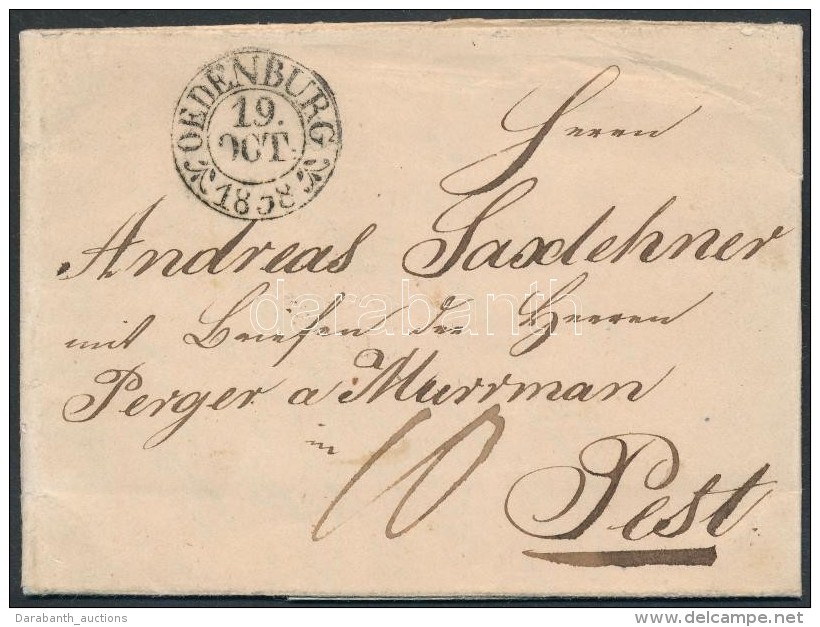 OEDENBURG
19.
OCT.
1838
Herrn
Andreas Saxlehner
mit Briefen der Herren
Perger a Murrman
in
10
Pest
darabanth
Darabanth_auctions
delcampe.net